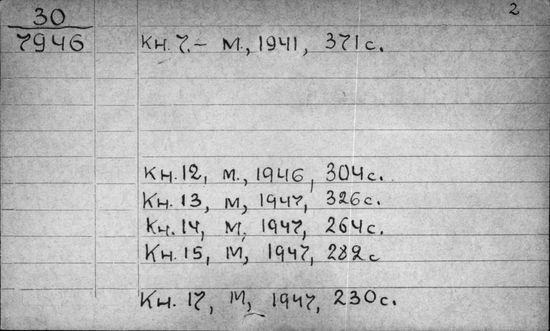 30
7946
2
Кн. 7. – М., 1941, 371 с.
Кн. 12, М., 1946, 304 с.
Кн. 13, М, 1947, 326 с.
Кн. 14, М, 1947, 264 с.
Кн. 15, М, 1947, 282 с
Кн. 17, М, 1947, 230 с.